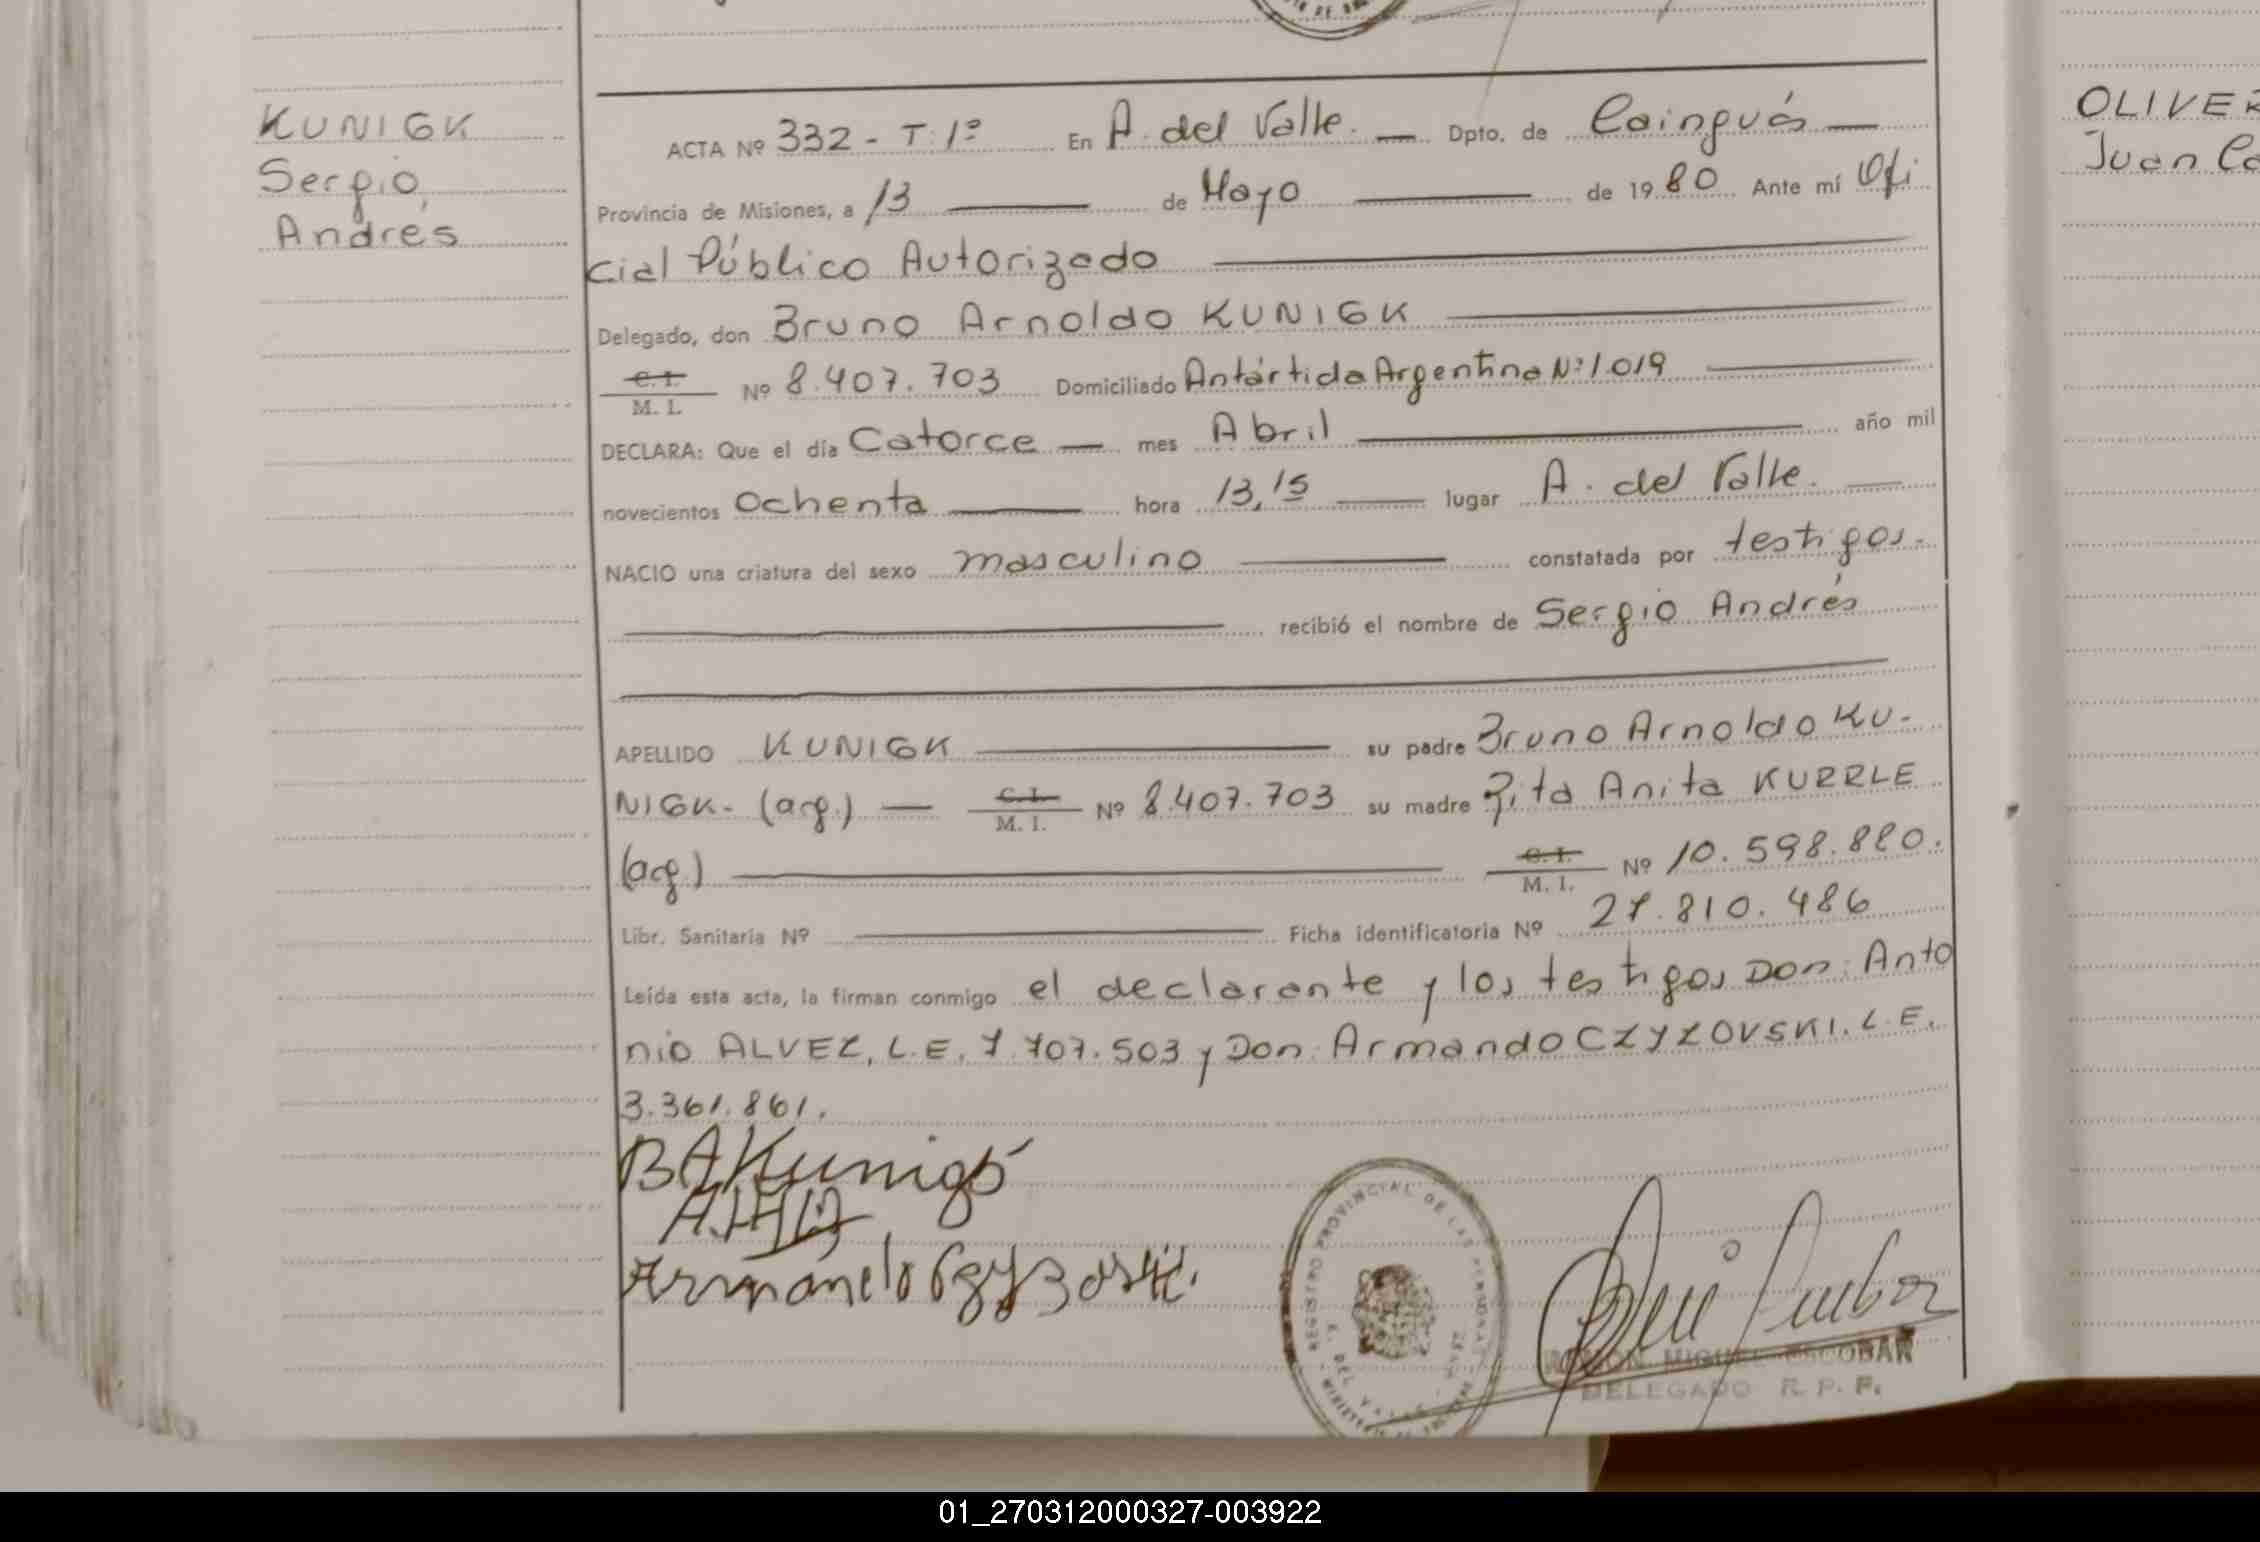 KUNIGK
Sergio
Andrés
ACTA Nº 332 - T: 1º En A. del Valle. — Dpto. de Cainguás —
Provincia de Misiones, a 13 — de Mayo — de 1980 Ante mí Ofi
cial Público Autorizado
Delegado, don Bruno Arnoldo KUNIGK
C. I.
M. I. Nº 8.407.703 Domiciliado Antártida Argentina Nº 1019
DECLARA: Que el día Catorce — mes Abril — año mil
novecientos Ochenta — hora 13,15 — lugar A. del Valle. —
NACIO una criatura del sexo masculino — constatada por testigos.
recibió el nombre de Sergio Andrés
APELLIDO KUNIGK — su padre Bruno Arnoldo KU-
NIGK- (arg.) — C. I. M. I. Nº 8.407.703 su madre Rita Anita KURRLE
(arg.) — C. I. M. I. Nº 10.598.880.
Libr. Sanitaria Nº — Ficha identificatoria Nº 27.810.486
Leída esta acta, la firman conmigo el declarante y los testigos Don: Anto
nio ALVEZ, L.E. 7.707.503 y Don: Armando CZYZOVSKI. L.E.
3.361.861.
BAKunigk
Armando
REGISTRO PROVINCIAL DE LAS PERSONAS
A. DEL VALLE
RAMON MIGUEL ESCOBAR
DELEGADO R. P. P.
OLIVER
Juan Ca
01_270312000327-003922